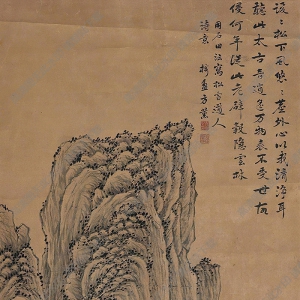 謖〻松下風悠〻塵外心以我清淨耳
聽此太古音逍遙万物表不受世故
侵何年從此老辟穀隱雲林
用石田法寫松雪道人
詩意 樗盦方薰